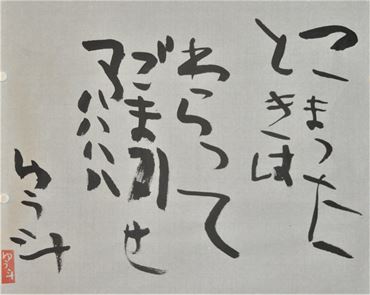 こまった
ときは
わらって
ごまかせ
アハハハ
ゆう斗
ゆう斗